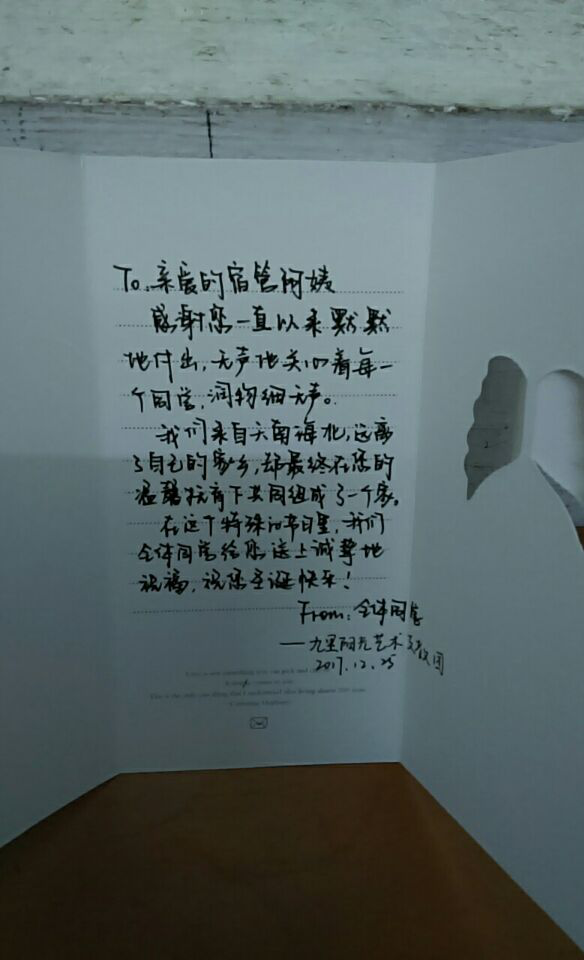 To:亲爱的宿管阿姨
感谢您一直以来默默
地付出,无声地关心着每一
个同学,润物细无声。
我们来自天南海北,远离
了自己的家乡,却最终在您的
温馨抚育下共同组成了一个家。
在这个特殊的节日里,我们
全体同学给您送上诚挚地
祝福,祝您圣诞快乐!
From:全体同学
——九里阳光艺术支教团
2017.12.25